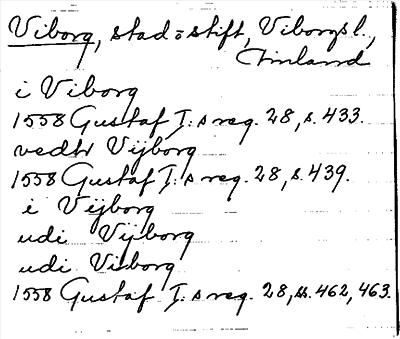 Viborg, stad o stift, Viborgs l.,
Finland
i Viborg
1558 Gustaf I:s reg. 28, s. 433.
vedtr Vijborg
1558 Gustaf I:s reg. 28, s. 439.
i Vijborg
udi Vijborg
udi Viborg
1558 Gustaf I:s reg. 28, ss. 462, 463.